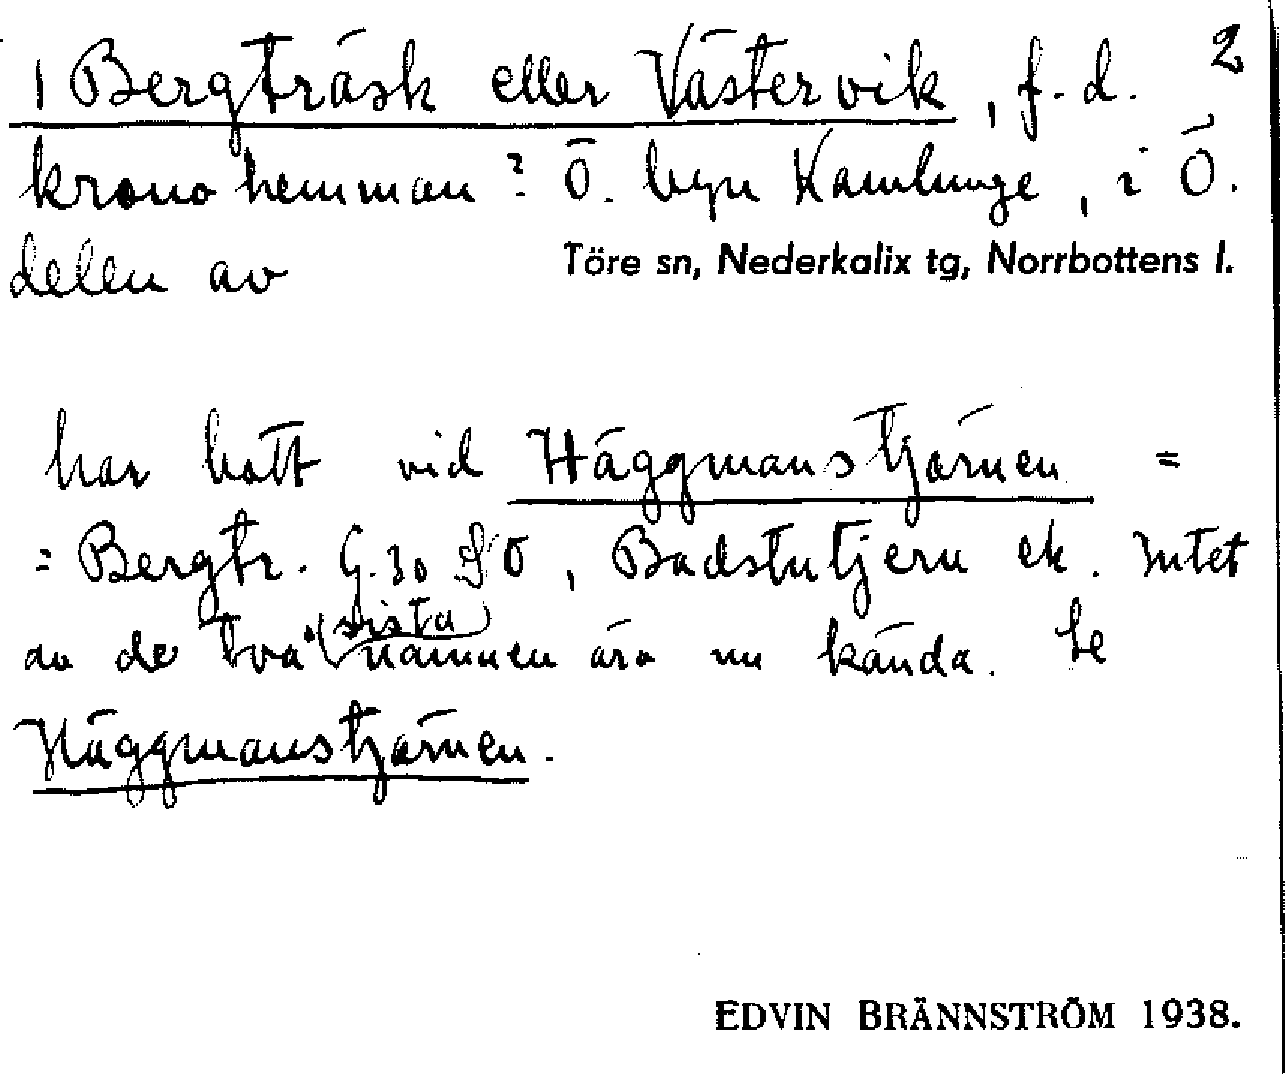 1 Bergträsk eller Västervik, f.d. 2
kronohemman? Ö. byn Kamlunge, i Ö.
delen av Töre sn, Nederkalix tg, Norrbottens l.
har hött vid Häggmanstjärnen =
= Bergtr. G. 30 SO, Badstutjern ek. Intet
av de två sista namnen äro nu kända. Se
Häggmanstjärnen.
EDVIN BRÄNNSTRÖM 1938.